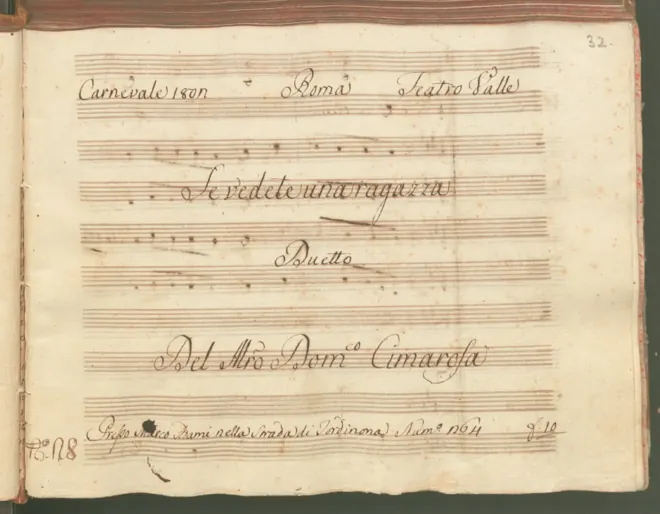 32.
Carnevale 180n Roma Teatro Valle
Se vedete una ragazza
Duetto
Del Mro Domco Cimarosa
Presso Marco nella Strada di Tordinona Numo
10